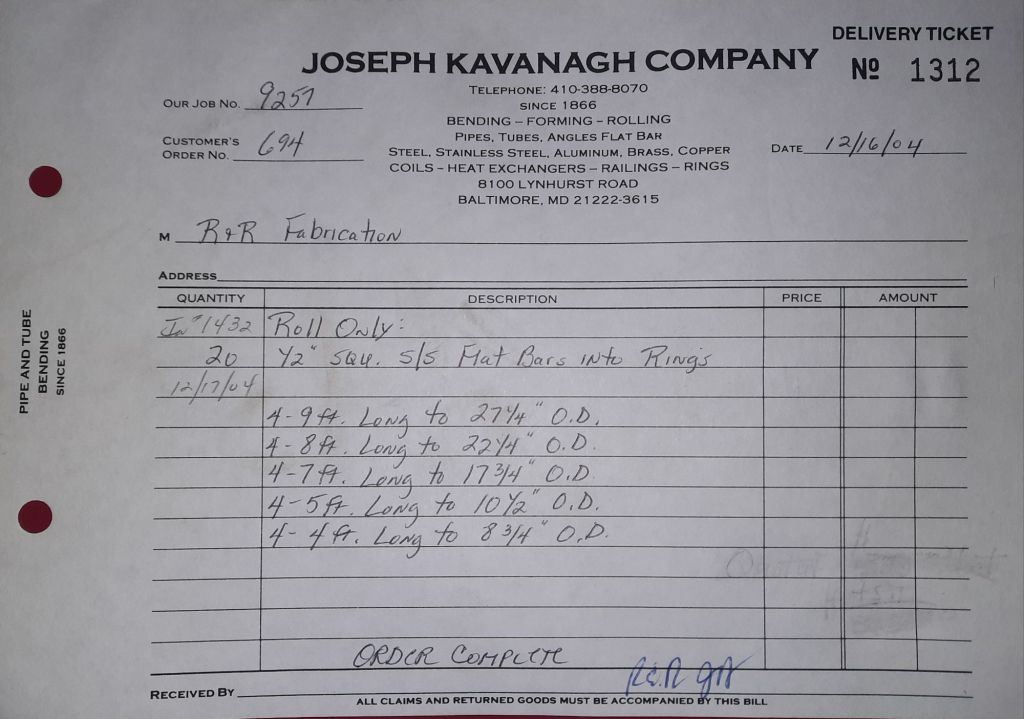 DELIVERY TICKET
JOSEPH KAVANAGH COMPANY
Nº 1312
TELEPHONE: 410-388-8070
SINCE 1866
BENDING – FORMING – ROLLING
PIPES, TUBES, ANGLES FLAT BAR
STEEL, STAINLESS STEEL, ALUMINUM, BRASS, COPPER
COILS – HEAT EXCHANGERS – RAILINGS – RINGS
8100 LYNHURST ROAD
BALTIMORE, MD 21222-3615
OUR JOB NO. 9257
CUSTOMER'S
ORDER NO. 694
DATE 12/16/04
M R&R Fabrication
ADDRESS
QUANTITY DESCRIPTION PRICE AMOUNT
In #1432 Roll Only:
20 1/2" SQU. S/S Flat Bars into Rings
12/17/04
4-9 ft. Long to 27 1/4" O.D.
4-8 ft. Long to 22 1/4" O.D.
4-7 ft. Long to 17 3/4" O.D.
4-5 ft. Long to 10 1/2" O.D.
4-4 ft. Long to 8 3/4" O.D.
ORDER COMPLETE
RECEIVED BY
ALL CLAIMS AND RETURNED GOODS MUST BE ACCOMPANIED BY THIS BILL
PIPE AND TUBE
BENDING
SINCE 1866